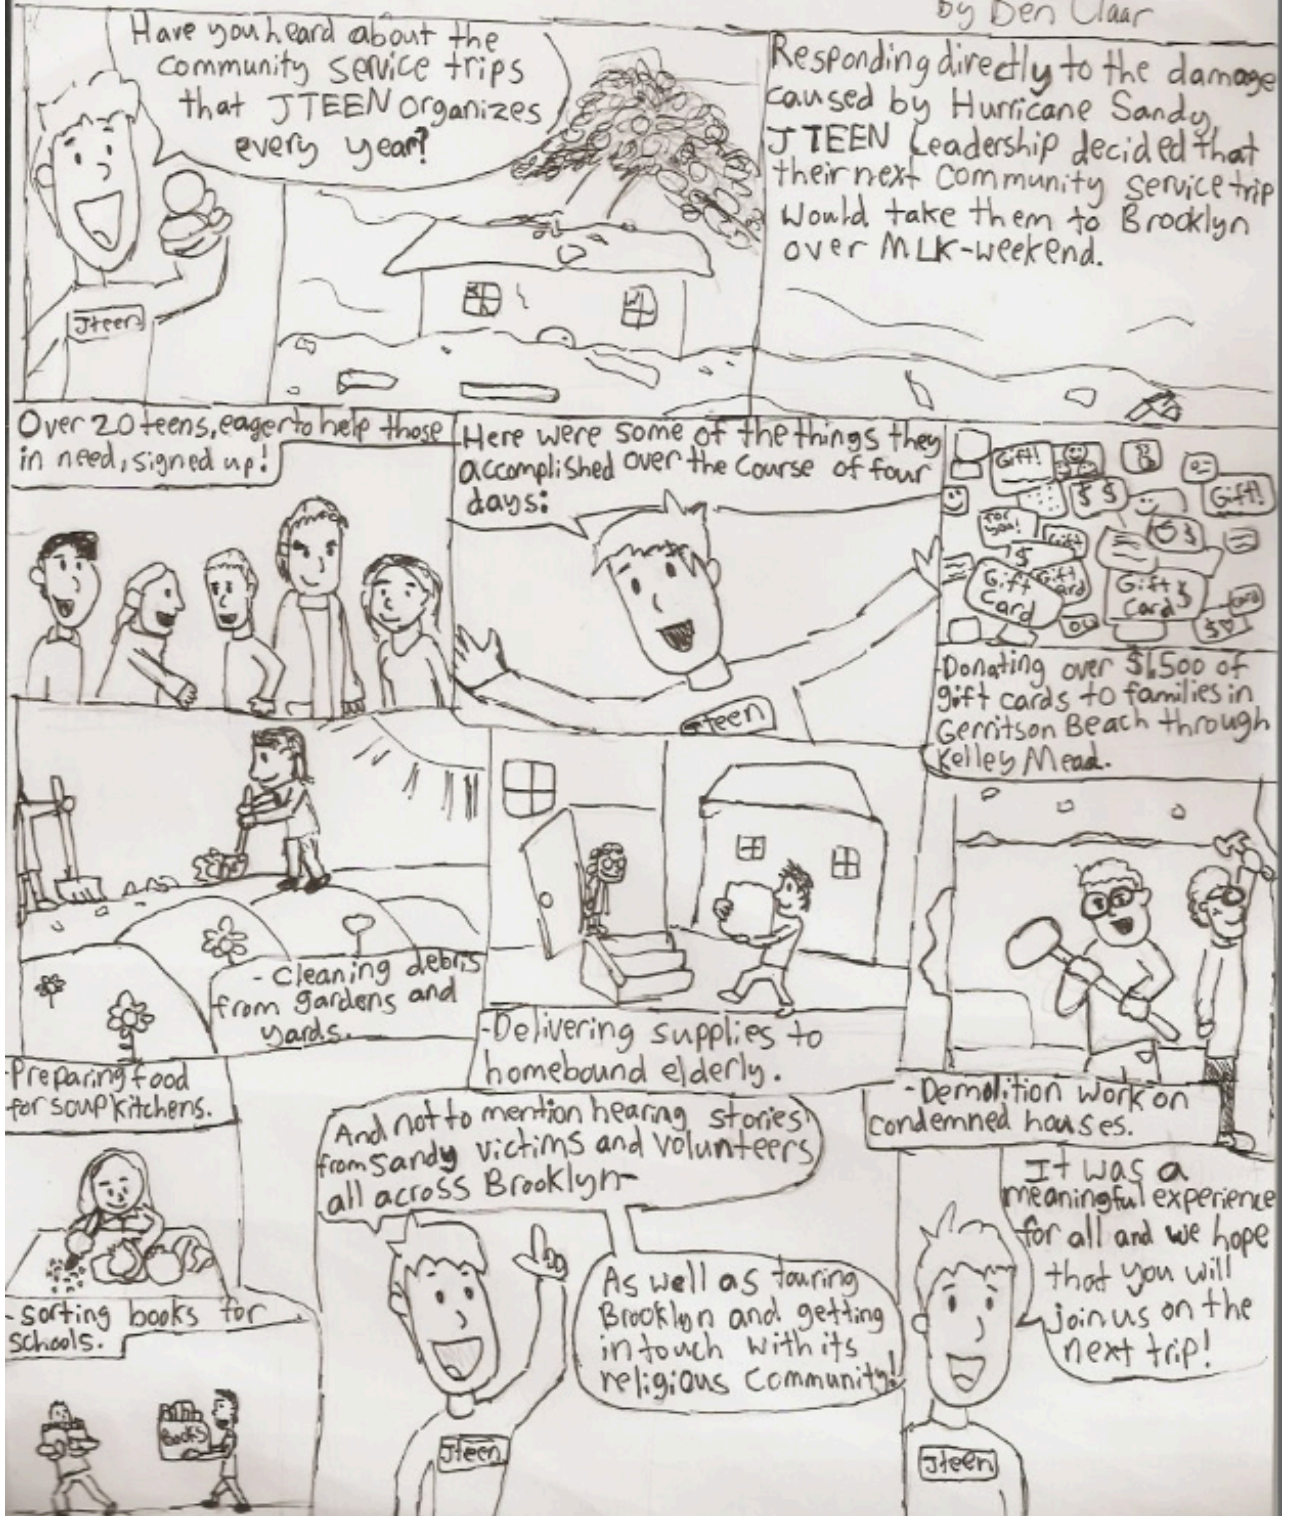 by Ben Claar
Have you heard about the
community service trips
that JTEEN organizes
every year?
Jteen
Responding directly to the damage
caused by Hurricane Sandy,
JTEEN Leadership decided that
their next community service trip
would take them to Brooklyn
over MLK-weekend.
Over 20 teens, eager to help those
in need, signed up!
Here were some of the things they
accomplished over the course of four
days:
Jteen
Gift!
$ $
Gift!
for
you!
Gift
$
$
Gift
Card
Gift
Card
Gift
Card $
Card
$
-Donating over $1,500 of
gift cards to families in
Gerritson Beach through
Kelley Mead.
- Cleaning debris
from gardens and
yards.
-Delivering supplies to
homebound elderly.
-Demolition work on
condemned houses.
-Preparing food
for soup kitchens.
-sorting books for
schools.
Books
And not to mention hearing stories
from Sandy victims and volunteers
all across Brooklyn-
As well as touring
Brooklyn and getting
in touch with its
religious community!
Jteen
It was a
meaningful experience
for all and we hope
that you will
join us on the
next trip!
Jteen